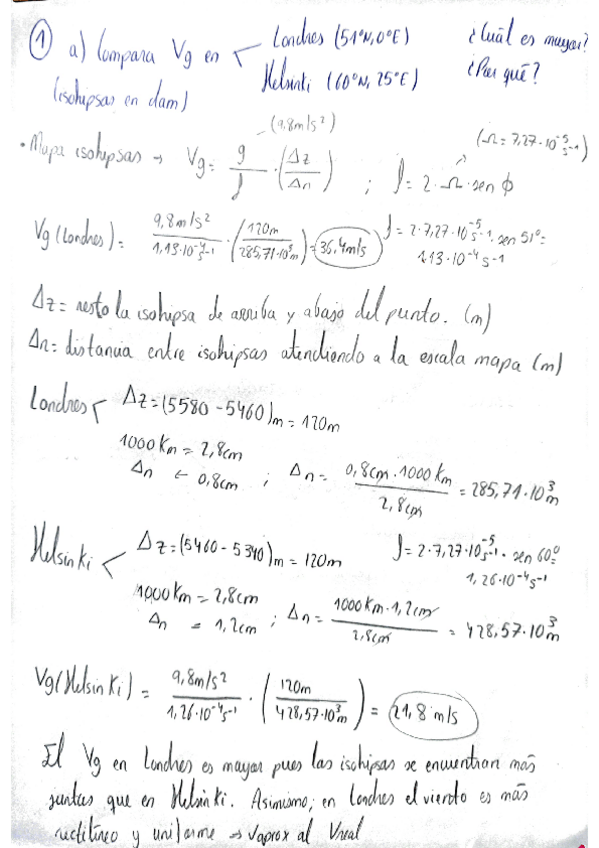 ① a) Compara Vg en < Londres (51°N, 0°E) ¿Cuál es mayor?
Helsinki (60°N, 25°E) ¿Por qué?
(isohipsas en dam)
(9,8m/s²)
• Mapa isohipsas → Vg = g/f · (Δz/Δn) ; f = 2·Ω·sen ϕ (Ω = 7,27·10⁻⁵ s⁻¹)
Vg (Londres) = 9,8 m/s² / 1,13·10⁻⁴ s⁻¹ · (120m / 285,71·10³ m) = 36,4 m/s f = 2·7,27·10⁻⁵ s⁻¹ · sen 51° =
1,13·10⁻⁴ s⁻¹
Δz = resto la isohipsa de arriba y abajo del punto. (m)
Δn = distancia entre isohipsas atendiendo a la escala mapa (m)
Londres < Δz = (5580 - 5460)m = 120m
1000 Km = 2,8cm
Δn ← 0,8cm ; Δn = 0,8cm · 1000 Km / 2,8cm = 285,71·10³ m
Helsinki < Δz = (5460 - 5340)m = 120m f = 2·7,27·10⁻⁵ s⁻¹ · sen 60° =
1,26·10⁻⁴ s⁻¹
1000 Km = 2,8cm
Δn = 1,2cm ; Δn = 1000 Km · 1,2cm / 2,8cm = 428,57·10³ m
Vg (Helsinki) = 9,8m/s² / 1,26·10⁻⁴ s⁻¹ · (120m / 428,57·10³ m) = 21,8 m/s
El Vg en Londres es mayor pues las isohipsas se encuentran más
juntas que en Helsinki. Asimismo, en Londres el viento es más
rectilíneo y uniforme → Vaprox al Vreal